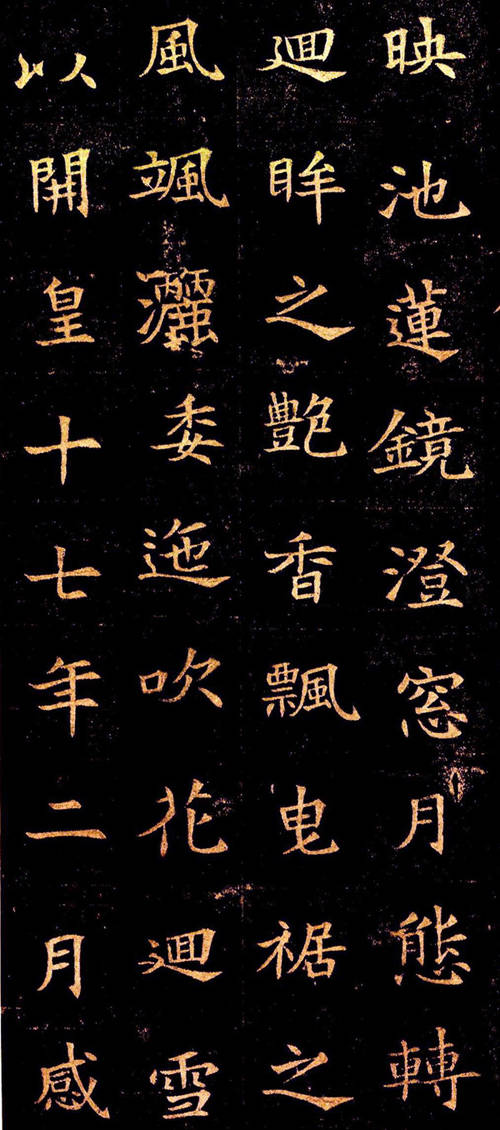 映池蓮鏡澄窓月態轉
迴眸之艷香飄曳裾之
風颯灑委迤吹花迴雪
以開皇十七年二月感